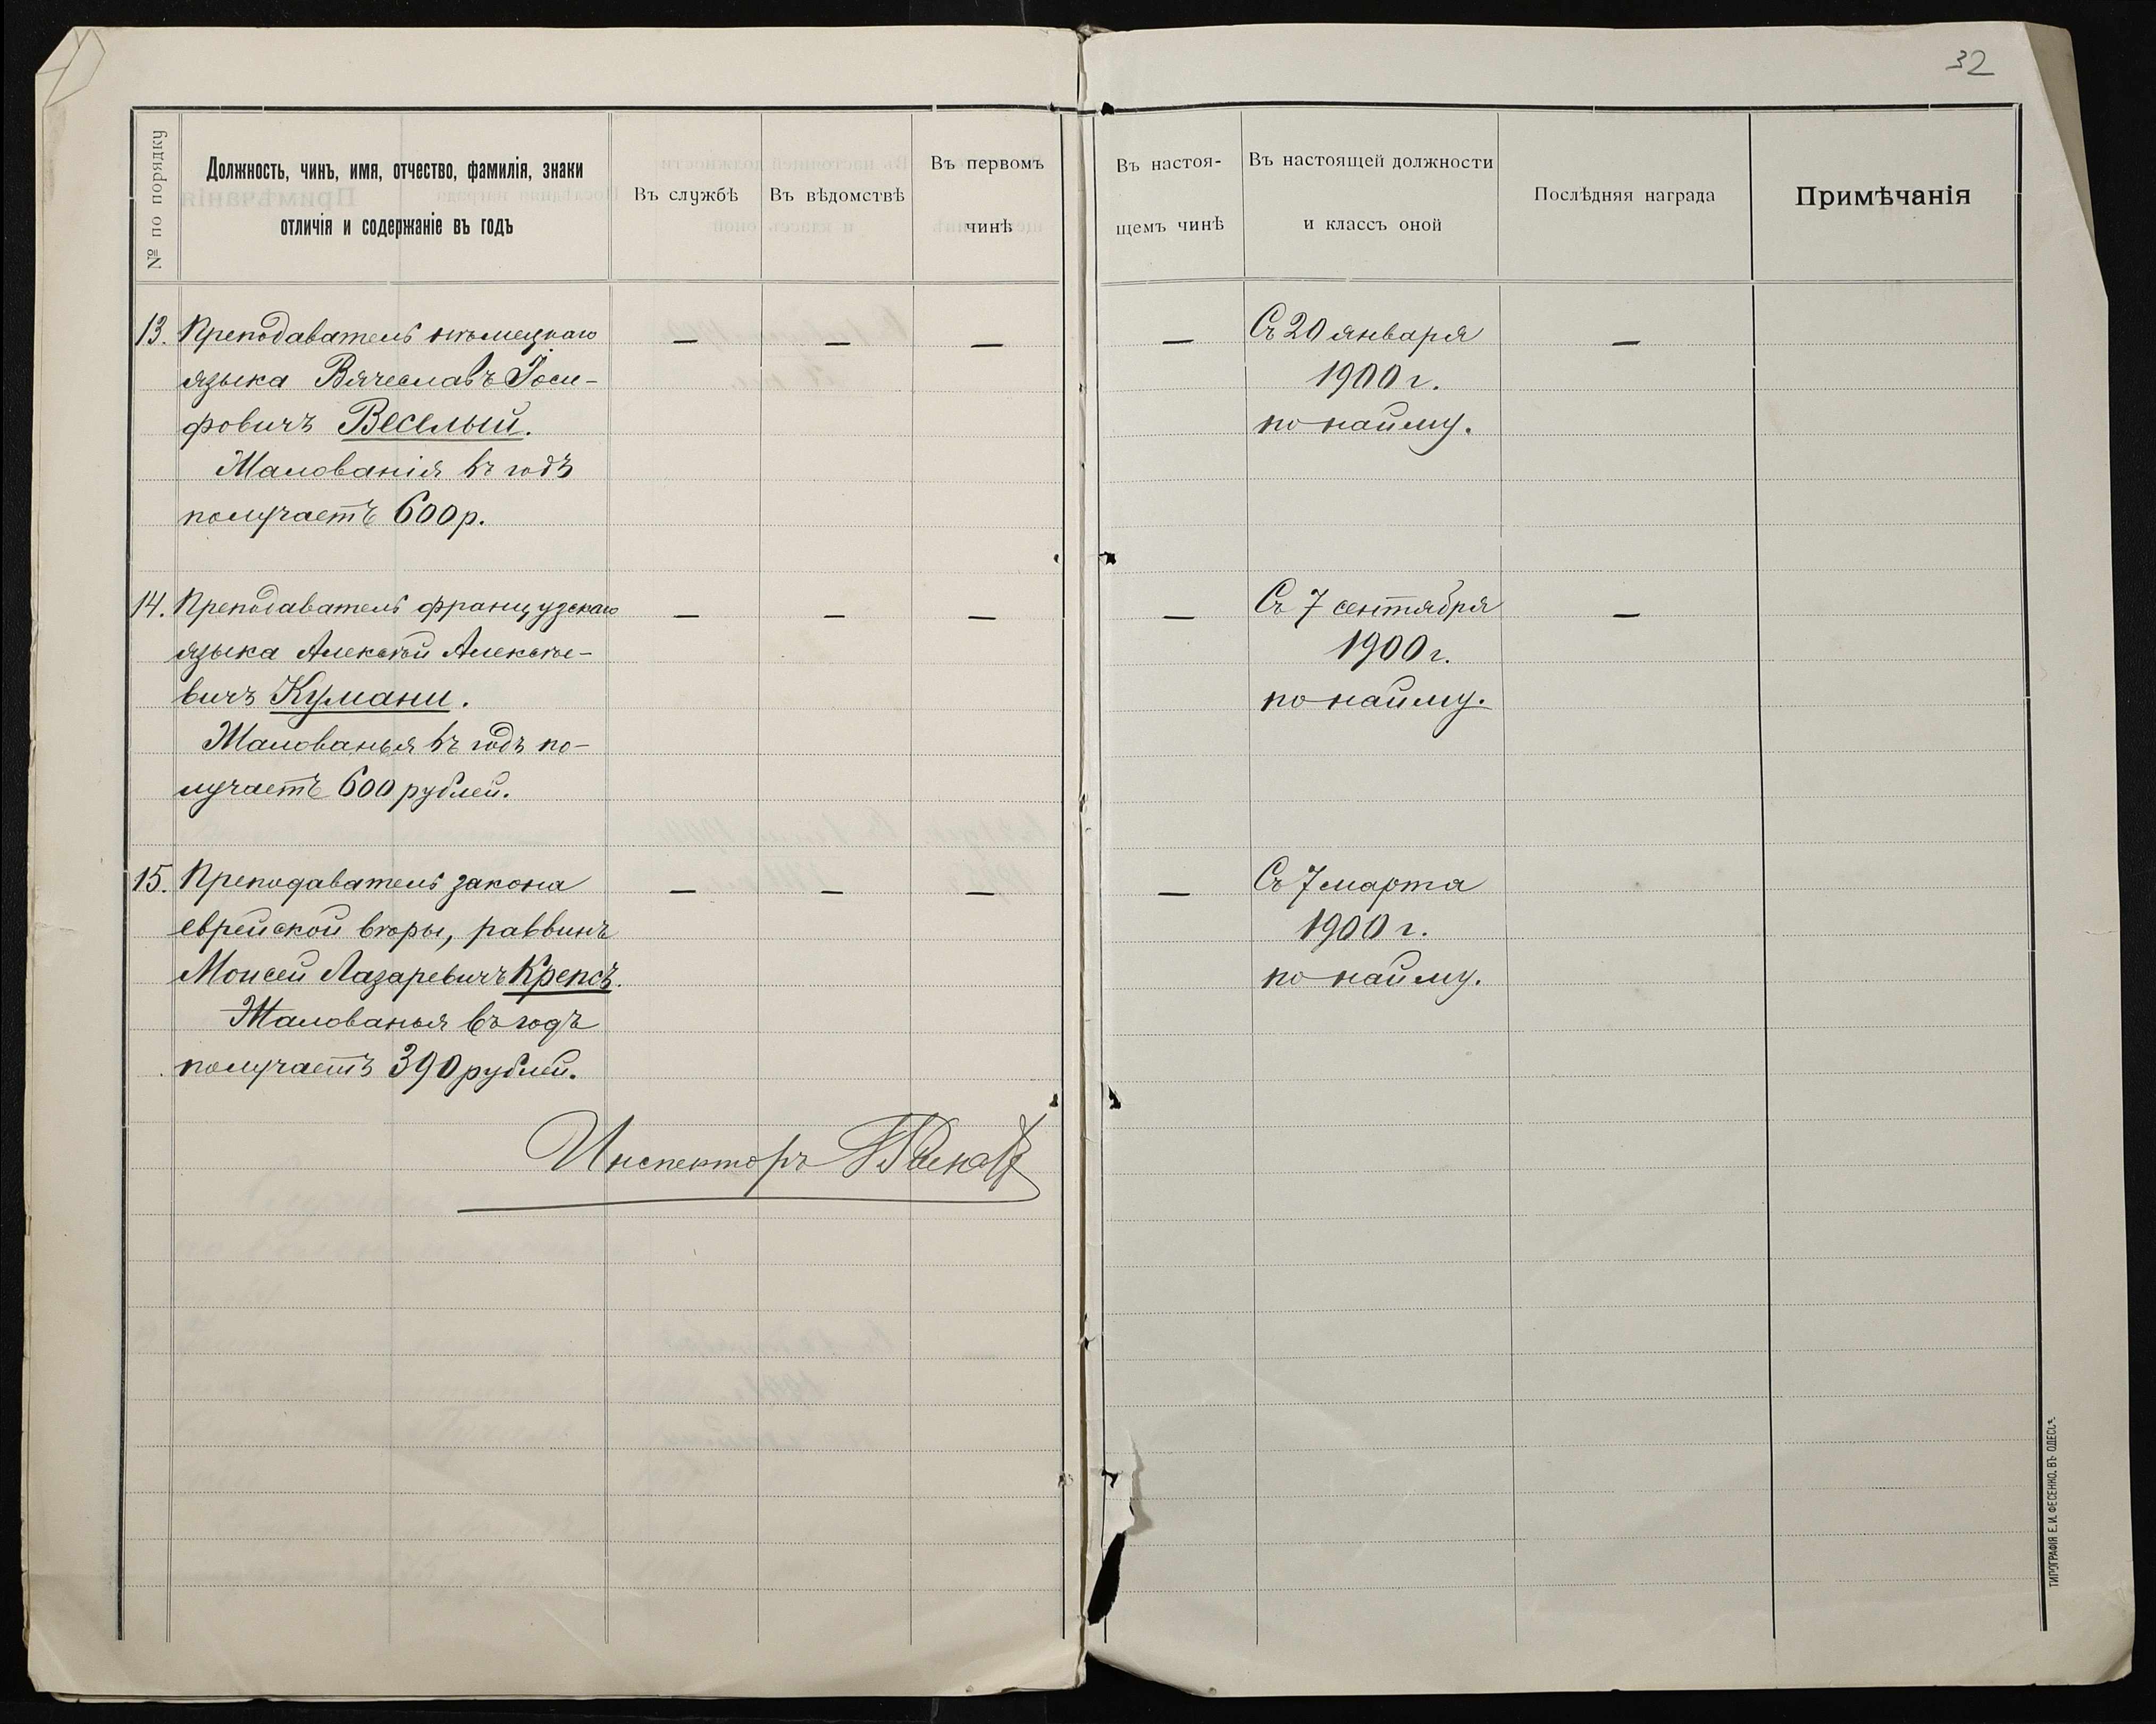 32
№ по порядку
Должность, чинъ, имя, отчество, фамилія, знаки
отличія и содержаніе въ годъ
Въ службѣ
Въ вѣдомствѣ
Въ первомъ
чинѣ
Въ настоя-
щемъ чинѣ
Въ настоящей должности
и классъ оной
Послѣдняя награда
Примѣчанія
13. Преподаватель нѣмецкаго — — — — Съ 20 января —
языка Вячеславъ Іоси- 1900 г.
фовичъ Веселый. по найму.
Жалованія въ годъ
получаетъ 600 р.
14. Преподаватель французскаго — — — — Съ 7 сентября —
языка Алексѣй Алексѣе- 1900 г.
вичъ Кумани. по найму.
Жалованья въ годъ по-
лучаетъ 600 рублей.
15. Преподаватель закона — — — — Съ 7 марта
еврейской вѣры, раввинъ 1900 г.
Моисей Лазаревичъ Крепсъ. по найму.
Жалованья въ годъ
получаетъ 390 рублей.
Инспекторъ
ТИПОГРАФІЯ Е. И. ФЕСЕНКО, ВЪ ОДЕССѢ.